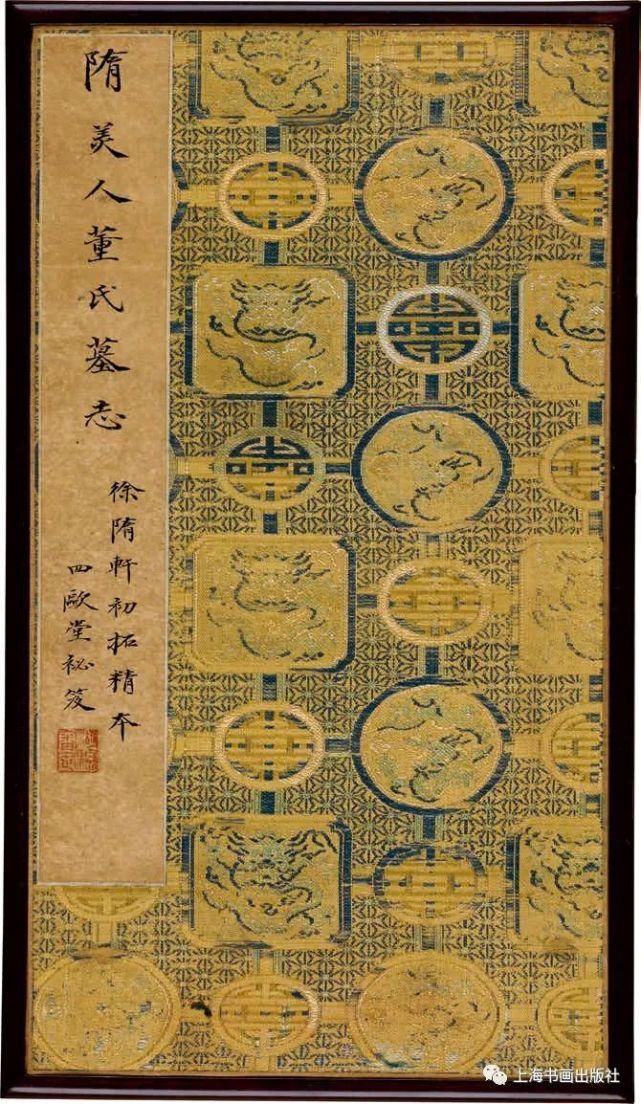 隋美人董氏墓志
徐隋轩初拓精本
四歐堂祕笈
上海书画出版社